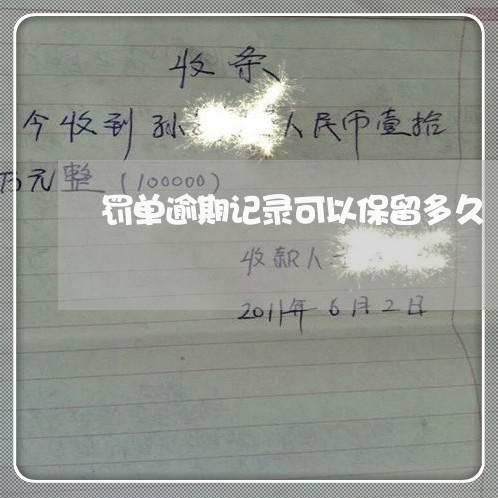 收条
今收到孙 人民币壹拾
万元整(100000)
罚单逾期记录可以保留多久
收款人
2011年6月2日